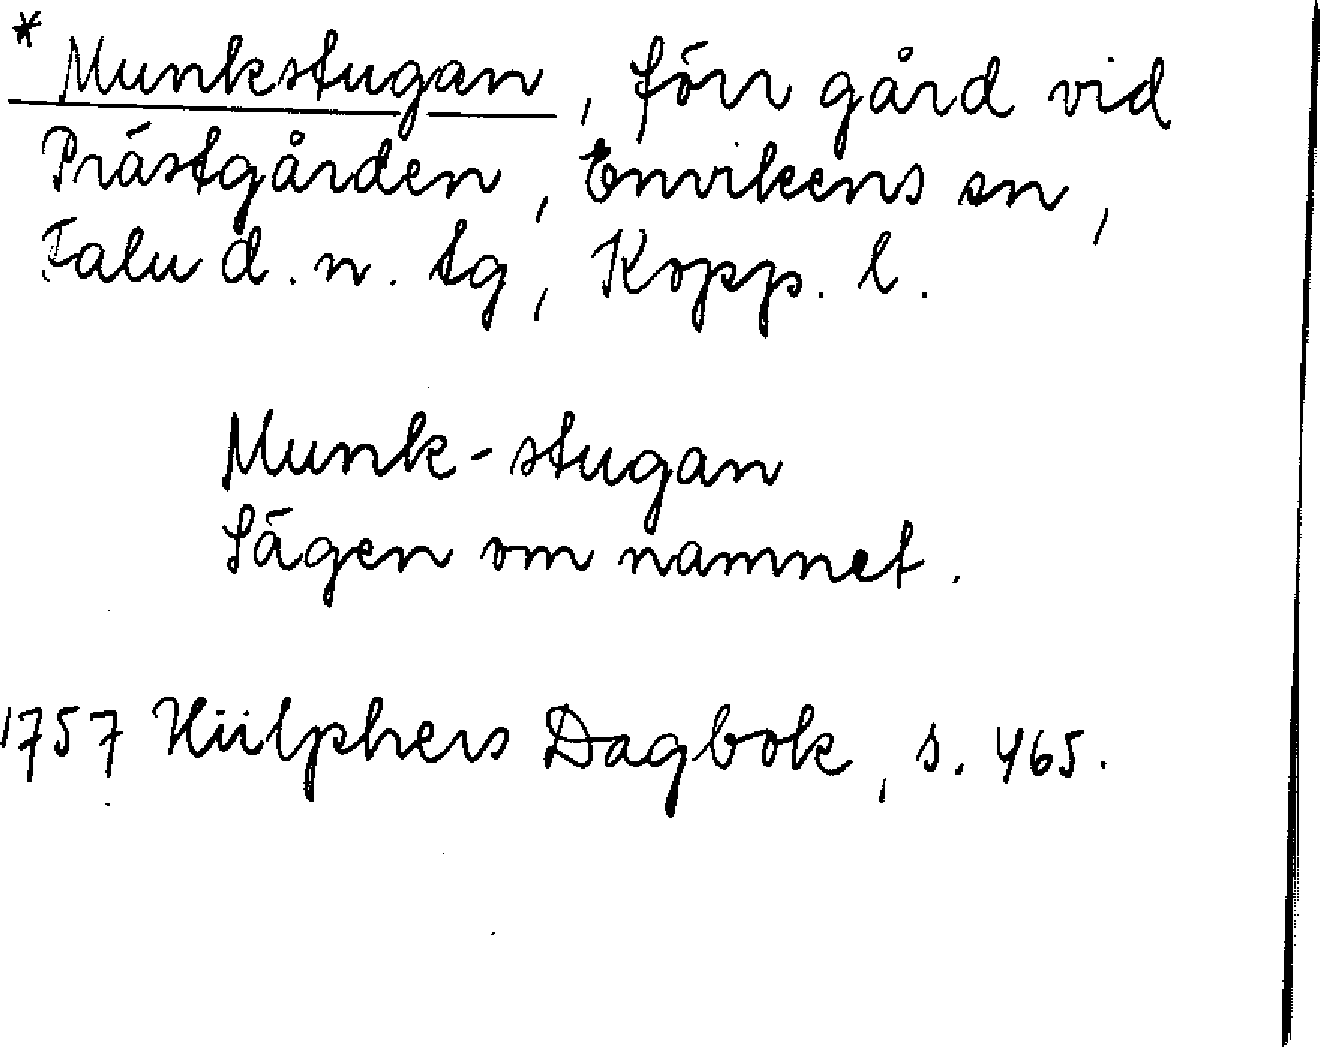 * Munkstugan, förr gård vid
Prästgården, Envikens sn,
Falu d. n. tg, Kopp. l.
Munk-stugan
Sägen om namnet.
1757 Hülphers Dagbok, s. 465.